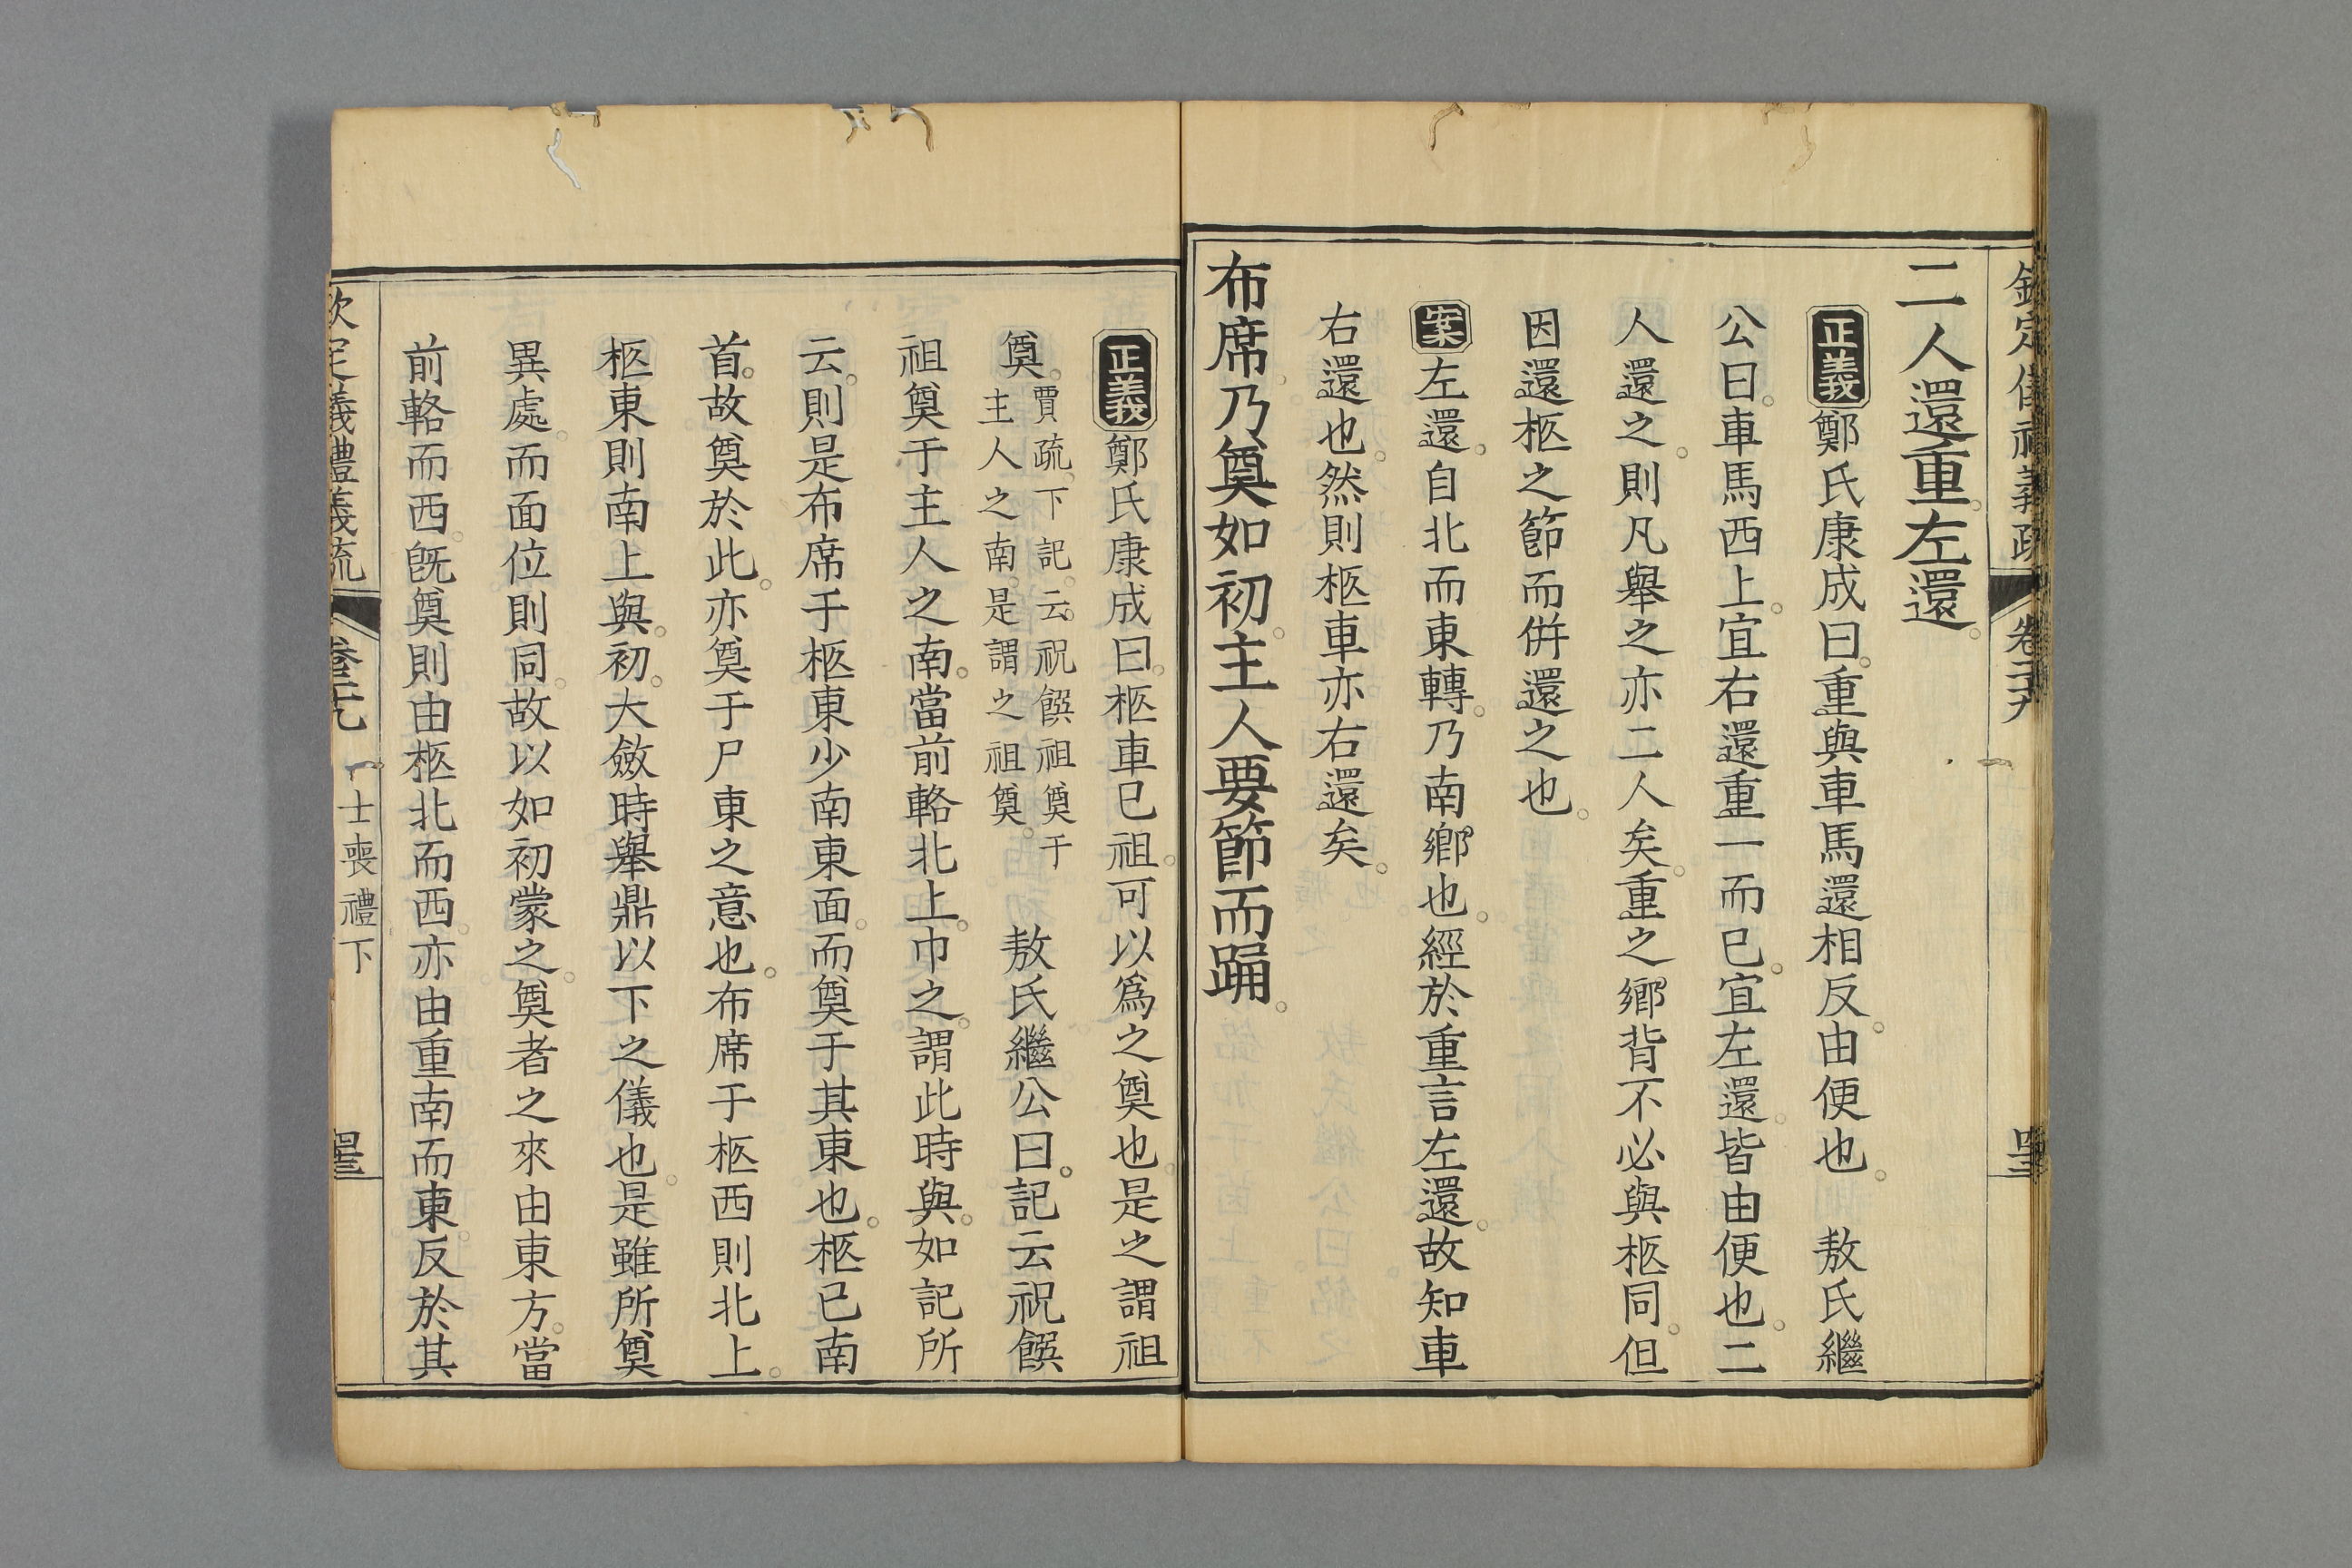 欽定儀禮義疏 卷二十九
二人還重左還
正義鄭氏康成曰重與車馬還相反由便也 敖氏繼
公曰車馬西上宜右還重一而已宜左還皆由便也二
人還之則凡舉之亦二人矣重之鄉背不必與柩同但
因還柩之節而併還之也
案左還自北而東轉乃南鄉也經於重言左還故知車
右還也然則柩車亦右還矣
布席乃奠如初主人要節而踊
正義鄭氏康成曰柩車已祖可以爲之奠也是之謂祖
奠賈疏下記云祝饌祖奠于主人之南是謂之祖奠 敖氏繼公曰記云祝饌
祖奠于主人之南當前輅北上巾之謂此時與如記所
云則是布席于柩東少南東面而奠于其東也柩已南
首故奠於此亦奠于尸東之意也布席于柩西則北上
柩東則南上與初大斂時舉鼎以下之儀也是雖所奠
異處而面位則同故以如初蒙之奠者之來由東方當
前輅而西旣奠則由柩北而西亦由重南而東反於其
欽定儀禮義疏 卷二十九 士喪禮下